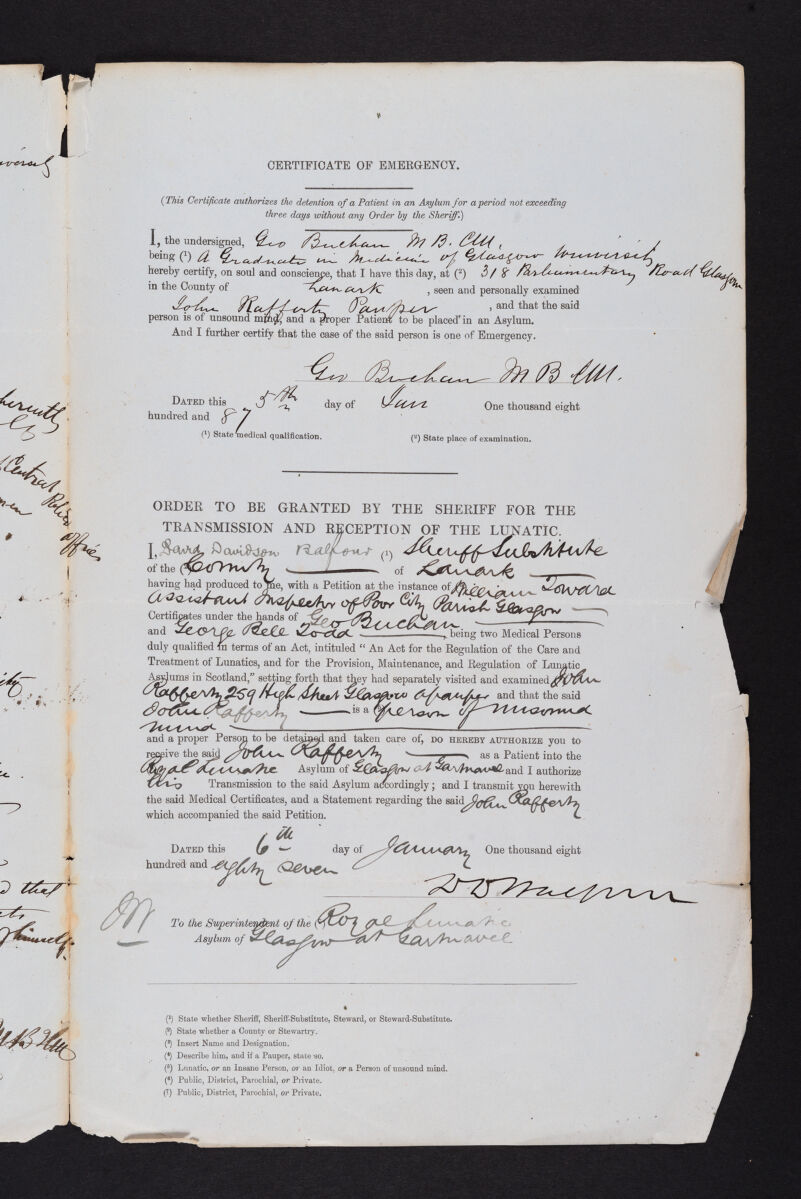 CERTIFICATE OF EMERGENCY.
(This Certificate authorizes the detention of a Patient in an Asylum for a period not exceeding
three days without any Order by the Sheriff.)
I, the undersigned, Geo Buchan M B. CM,
being (1) A Graduate in Medicine of Glasgow University
hereby certify, on soul and conscience, that I have this day, at (2) 318 Parliamentary Road Glasgow
in the County of Lanark , seen and personally examined
John Rafferty Pauper , and that the said
person is of unsound mind, and a proper Patient to be placed in an Asylum.
And I further certify that the case of the said person is one of Emergency.
Geo Buchan M B CM.
DATED this 5th day of Jan One thousand eight
hundred and 87
(1) State medical qualification. (2) State place of examination.
ORDER TO BE GRANTED BY THE SHERIFF FOR THE
TRANSMISSION AND RECEPTION OF THE LUNATIC.
I, David Davidson Balfour (1) Sheriff Substitute
of the (2) County of Lanark
having had produced to me, with a Petition at the instance of William Toward
Assistant Inspector of Poor City Parish Glasgow
Certificates under the hands of Geo Buchan
and George Bell Todd being two Medical Persons
duly qualified in terms of an Act, intituled " An Act for the Regulation of the Care and
Treatment of Lunatics, and for the Provision, Maintenance, and Regulation of Lunatic
Asylums in Scotland," setting forth that they had separately visited and examined John
Rafferty 259 High Street Glasgow a pauper and that the said
John Rafferty is a person of unsound
mind
and a proper Person to be detained and taken care of, DO HEREBY AUTHORIZE you to
receive the said John Rafferty as a Patient into the
Royal Lunatic Asylum of Glasgow at Gartnavel and I authorize
his Transmission to the said Asylum accordingly; and I transmit you herewith
the said Medical Certificates, and a Statement regarding the said John Rafferty
which accompanied the said Petition.
DATED this 6th day of January One thousand eight
hundred and eighty seven
To the Superintendent of the Royal Lunatic
Asylum of Glasgow at Gartnavel
(1) State whether Sheriff, Sheriff-Substitute, Steward, or Steward-Substitute.
(2) State whether a County or Stewartry.
(3) Insert Name and Designation.
(4) Describe him, and if a Pauper, state so.
(5) Lunatic, or an Insane Person, or an Idiot, or a Person of unsound mind.
(6) Public, District, Parochial, or Private.
(7) Public, District, Parochial, or Private.
Central Police
office
d that
himself.